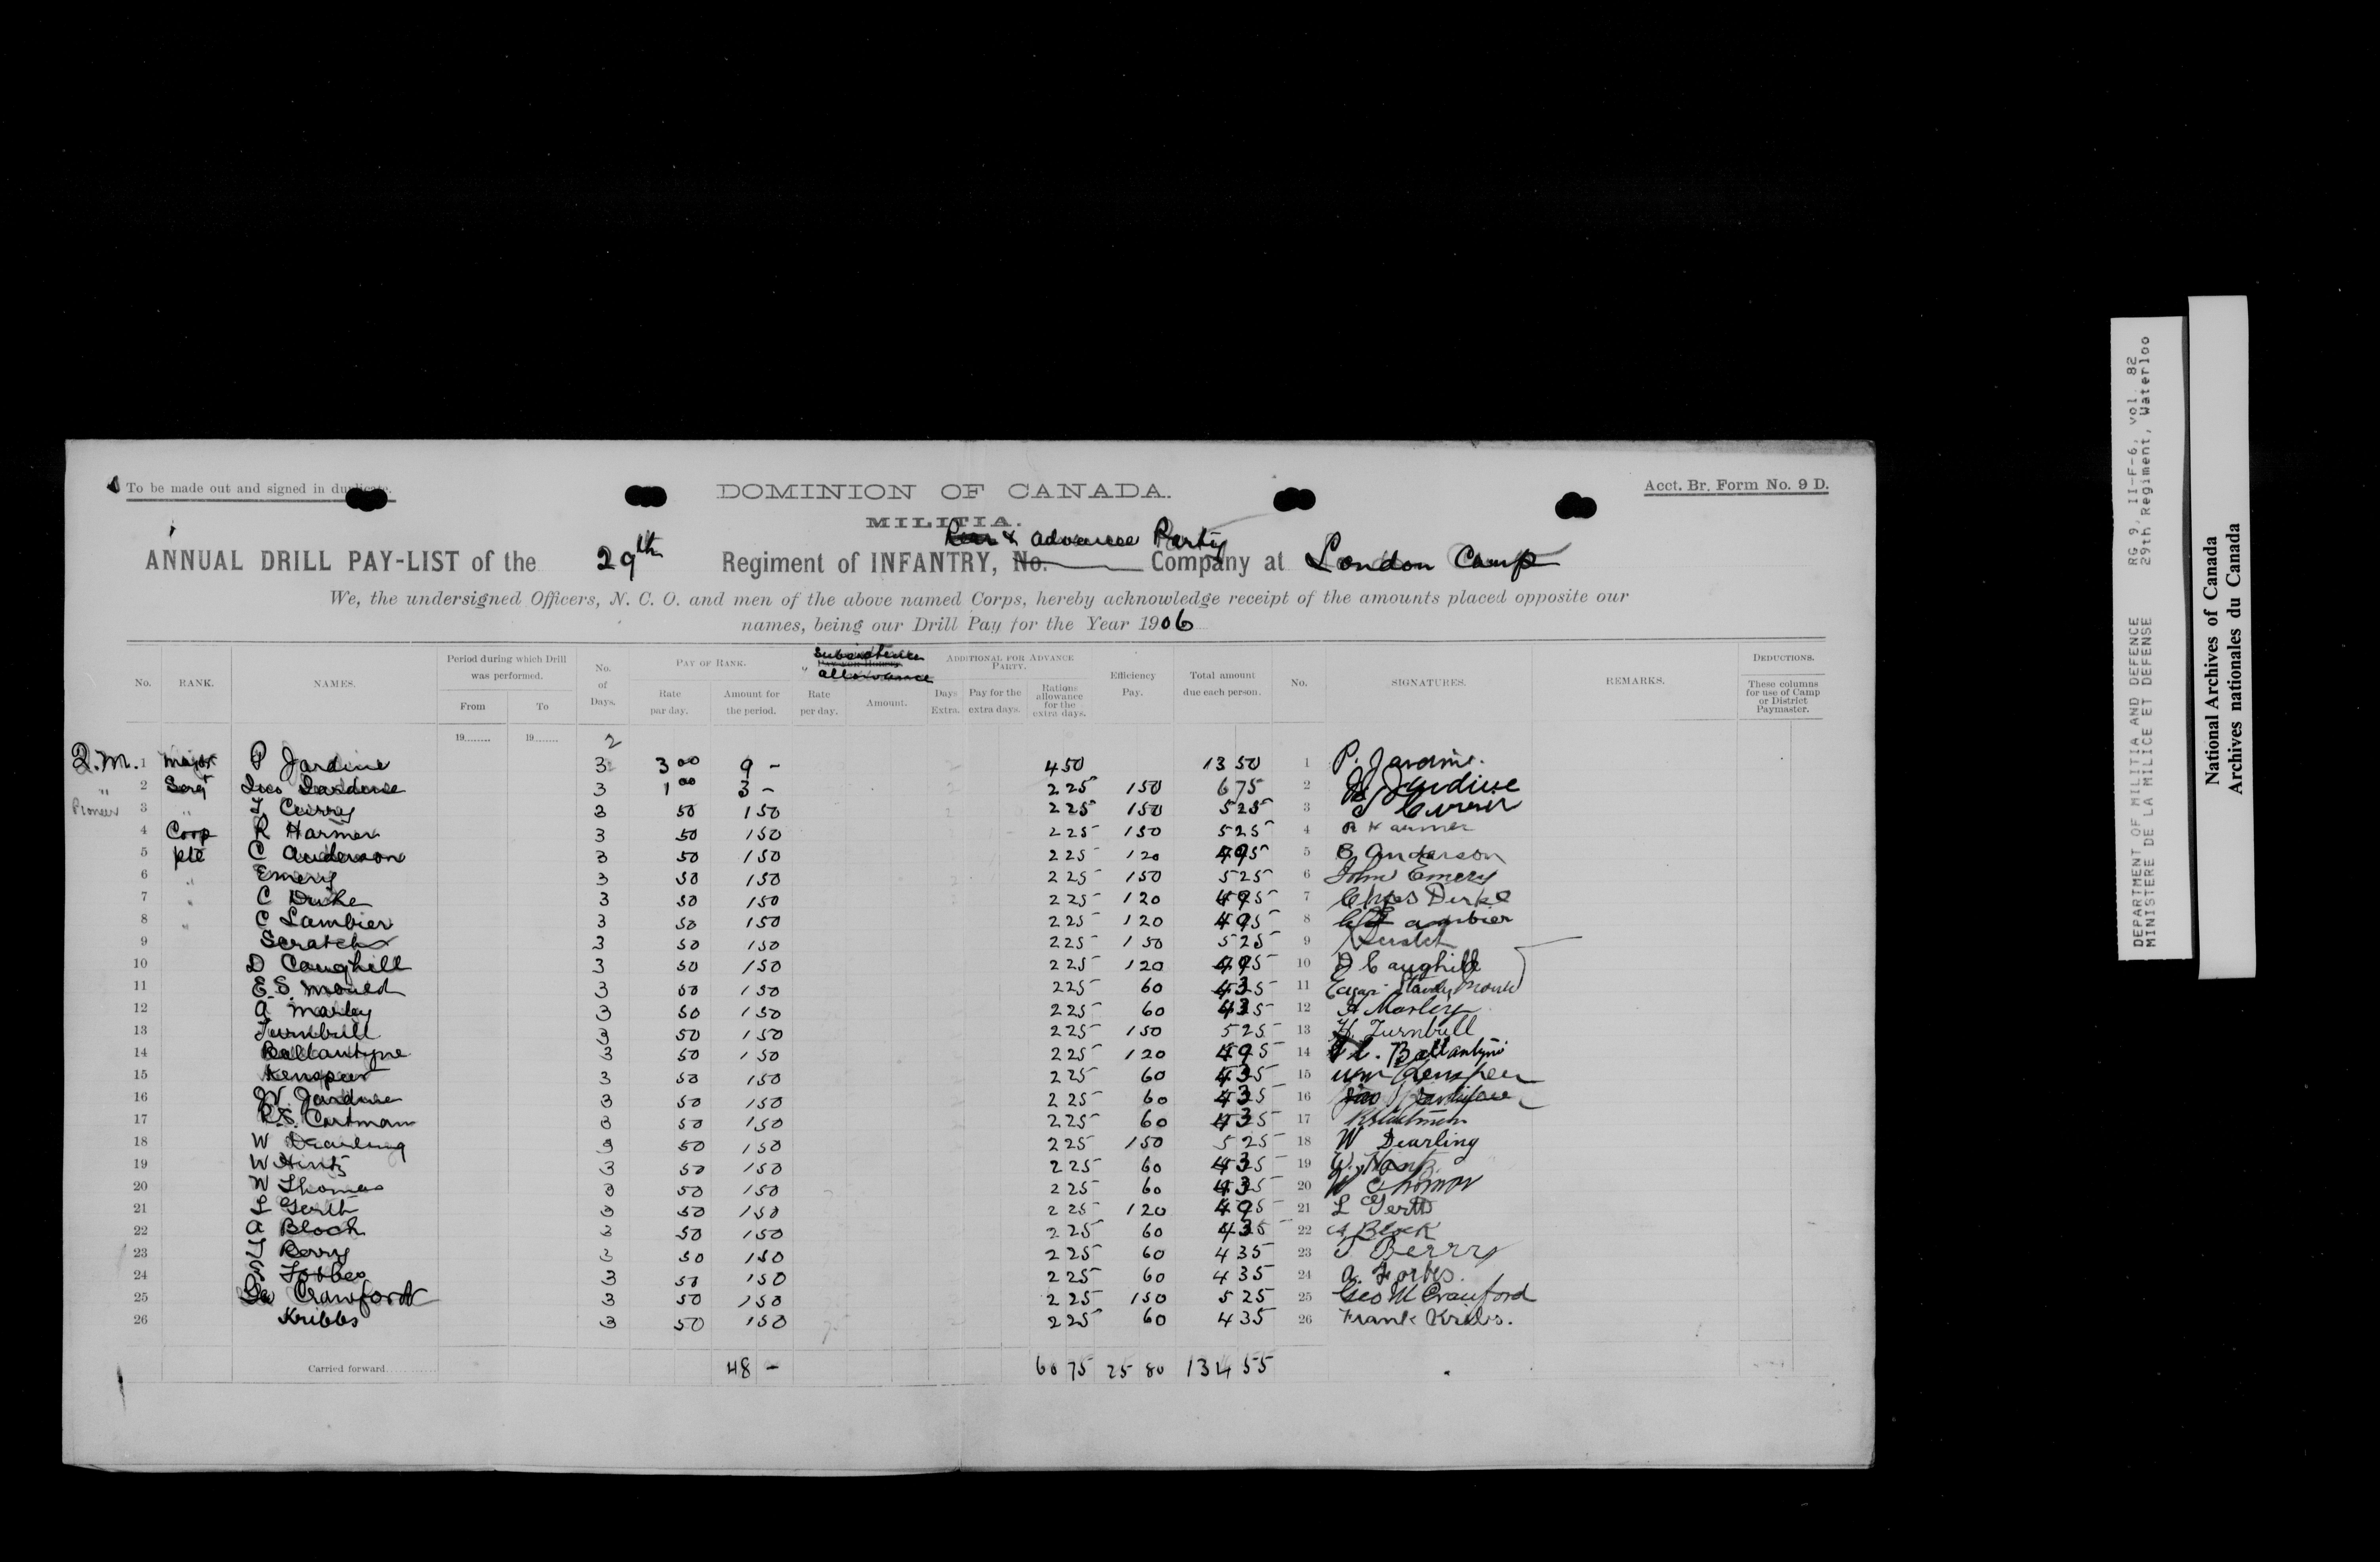 To be made out and signed in duplicate.
DOMINION OF CANADA.
Acct. Br. Form No. 9 D.
MILITIA.
& advance Party
ANNUAL DRILL PAY-LIST of the 29th Regiment of INFANTRY, No. Company at London Camp
We, the undersigned Officers, N. C. O. and men of the above named Corps, hereby acknowledge receipt of the amounts placed opposite our
names, being our Drill Pay for the Year 1906
No. RANK. NAMES. Period during which Drill was performed. From To No. of Days. PAY OF RANK. Rate par day. Amount for the period. Subsistence allowance Rate per day. Amount. ADDITIONAL FOR ADVANCE PARTY. Days Extra. Pay for the extra days. Rations allowance for the extra days. Efficiency Pay. Total amount due each person. No. SIGNATURES. REMARKS. DEDUCTIONS. These columns for use of Camp or District Paymaster.
19 19 2
Q.M. 1 Major P Jardine 3 3 00 9 - 4 50 13 50 1 P. Jardine.
" 2 Sergt Jardine 3 1 00 3 - 2 25 1 50 6 75 2 Jardine
Pioneer 3 " T Curry 3 50 1 50 2 25 1 50 5 25 3
4 Corp R Harmer 3 50 1 50 2 25 1 50 5 25 4 R Harmer
5 pte C Anderson 3 50 1 50 2 25 1 20 4 95 5 C Anderson
6 " Emery 3 50 1 50 2 25 1 50 5 25 6 John Emery
7 " C Dirke 3 50 1 50 2 25 1 20 4 95 7 Chas Dirke
8 " C Lambier 3 50 1 50 2 25 1 20 4 95 8 C Lambier
9 Scratch 3 50 1 50 2 25 1 50 5 25 9 Scratch
10 D Caughill 3 50 1 50 2 25 1 20 4 95 10 D Caughill
11 E.S. 3 50 1 50 2 25 60 4 35 11 Edgar Stanley
12 A Marley 3 50 1 50 2 25 60 4 35 12 A Marley
13 Turnbull 3 50 1 50 2 25 1 50 5 25 13 H. Turnbull
14 Ballantyne 3 50 1 50 2 25 1 20 4 95 14 Ballantyne
15 3 50 1 50 2 25 60 4 35 15 Wm
16 W. Jardine 3 50 1 50 2 25 60 4 35 16
17 R.S. Cartman 3 50 1 50 2 25 60 4 35 17
18 W Dearling 3 50 1 50 2 25 1 50 5 25 18 W Dearling
19 W Hintz 3 50 1 50 2 25 60 4 35 19 W.
20 W Thomas 3 50 1 50 2 25 60 4 35 20 W Thomas
21 L Gerth 3 50 1 50 2 25 1 20 4 95 21 L Gerth
22 A Block 3 50 1 50 2 25 60 4 35 22 A Block
23 T Berry 3 50 1 50 2 25 60 4 35 23 T Berry
24 Forbes 3 50 1 50 2 25 60 4 35 24 A. Forbes.
25 Geo Crawford 3 50 1 50 2 25 1 50 5 25 25 Geo M Crawford
26 Kribbs 3 50 1 50 2 25 60 4 35 26 Frank Kribs.
Carried forward 48 - 60 75 25 80 134 55
DEPARTMENT OF MILITIA AND DEFENCE RG 9, II-F-6, vol. 82
MINISTERE DE LA MILICE ET DEFENSE 29th Regiment, Waterloo
National Archives of Canada
Archives nationales du Canada